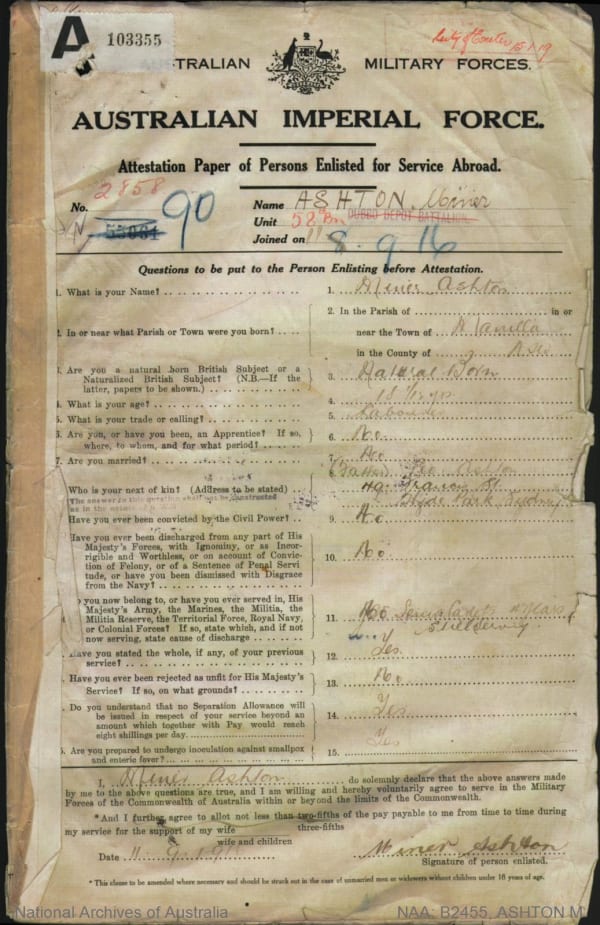 A 103355
City of Exeter 15-1-19
AUSTRALIAN MILITARY FORCES.
AUSTRALIAN IMPERIAL FORCE.
Attestation Paper of Persons Enlisted for Service Abroad.
No. 2858
N 55034 90
Name ASHTON. Miner
Unit 58th Bn DUBBO DEPOT BATTALION.
Joined on 11 8. 9. 16
Questions to be put to the Person Enlisting before Attestation.
1. What is your Name? 1. Miner Ashton
2. In or near what Parish or Town were you born? 2. In the Parish of in or
near the Town of Manilla
in the County of
3. Are you a natural born British Subject or a
Naturalized British Subject? (N.B.—If the
latter, papers to be shown.) 3. Natural Born
4. What is your age? 4. 18
5. What is your trade or calling? 5. Labourer
6. Are you, or have you been, an Apprentice? If so,
where, to whom, and for what period? 6. No.
7. Are you married? 7. No
Who is your next of kin? (Address to be stated) 8. (Father) Geo Ashton
49 Francis St
Hyde Park Sydney
The answer to this question shall not be
as in the nature of
Have you ever been convicted by the Civil Power? 9. No
Have you ever been discharged from any part of His
Majesty's Forces, with Ignominy, or as Incor-
rigible and Worthless, or on account of Convic-
tion of Felony, or of a Sentence of Penal Servi
tude, or have you been dismissed with Disgrace
from the Navy? 10. No
you now belong to, or have you ever served in, His
Majesty's Army, the Marines, the Militia, the
Militia Reserve, the Territorial Force, Royal Navy,
or Colonial Forces? If so, state which, and if not
now serving, state cause of discharge 11. Senior Cadets Years
Still Serving
Have you stated the whole, if any, of your previous
service? 12. Yes
Have you ever been rejected as unfit for His Majesty's
Service? If so, on what grounds? 13. No
Do you understand that no Separation Allowance will
be issued in respect of your service beyond an
amount which together with Pay would reach
eight shillings per day. 14. Yes
5. Are you prepared to undergo inoculation against smallpox
and enteric fever? 15. Yes
I, Miner Ashton do solemnly declare that the above answers made
by me to the above questions are true, and I am willing and hereby voluntarily agree to serve in the Military
Forces of the Commonwealth of Australia within or beyond the limits of the Commonwealth.
*And I further agree to allot not less than two-fifths of the pay payable to me from time to time during
three-fifths
my service for the support of my wife
wife and children
Date 11. 9. 1916 Miner Ashton
Signature of person enlisted.
* This clause to be amended where necessary and should be struck out in the case of unmarried men or widowers without children under 16 years of age.
National Archives of Australia NAA: B2455, ASHTON M